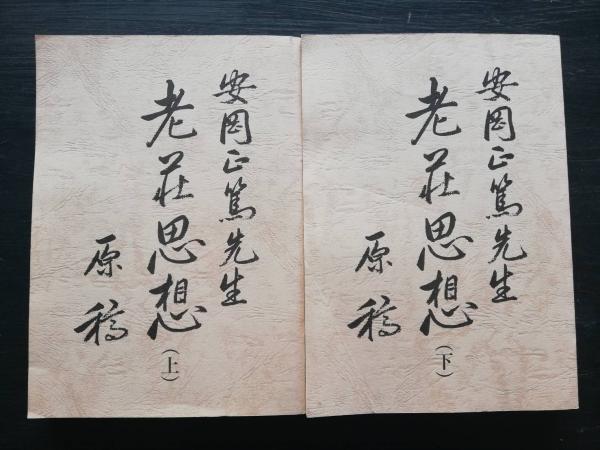 安岡正篤先生
老荘思想(上)
原稿
安岡正篤先生
老荘思想(下)
原稿